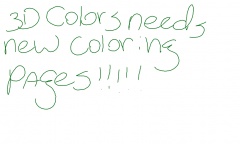 3D Colors needs
new coloring
pages!!!!!